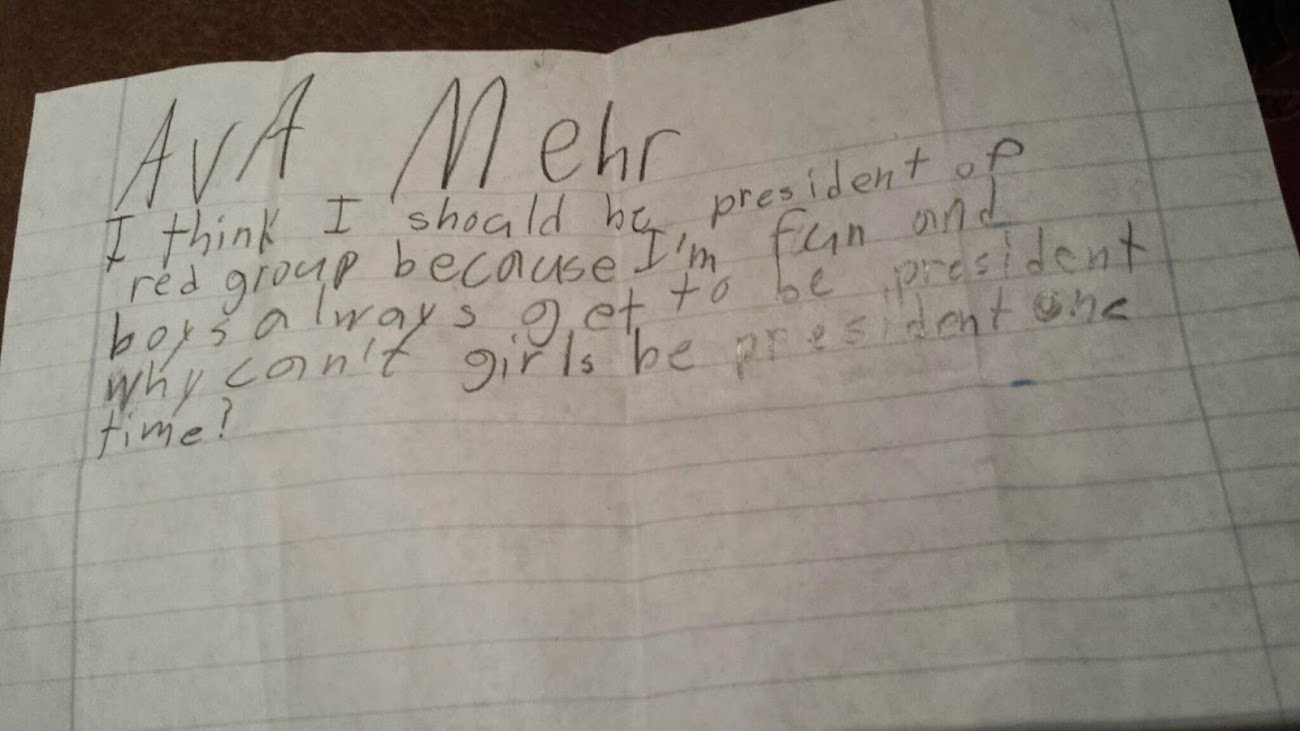 AvA Mehr
I think I should be president of
red group because I'm fun and
boys always get to be president
why can't girls be president one
time?